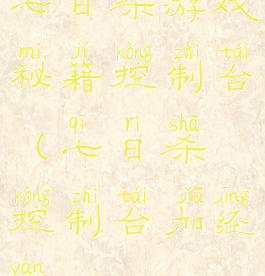 七日杀游戏
mì jí kòng zhì tái
秘籍控制台
qī rì shā
（七日杀
kòng zhì tái jiā jīng
控制台加经
yàn